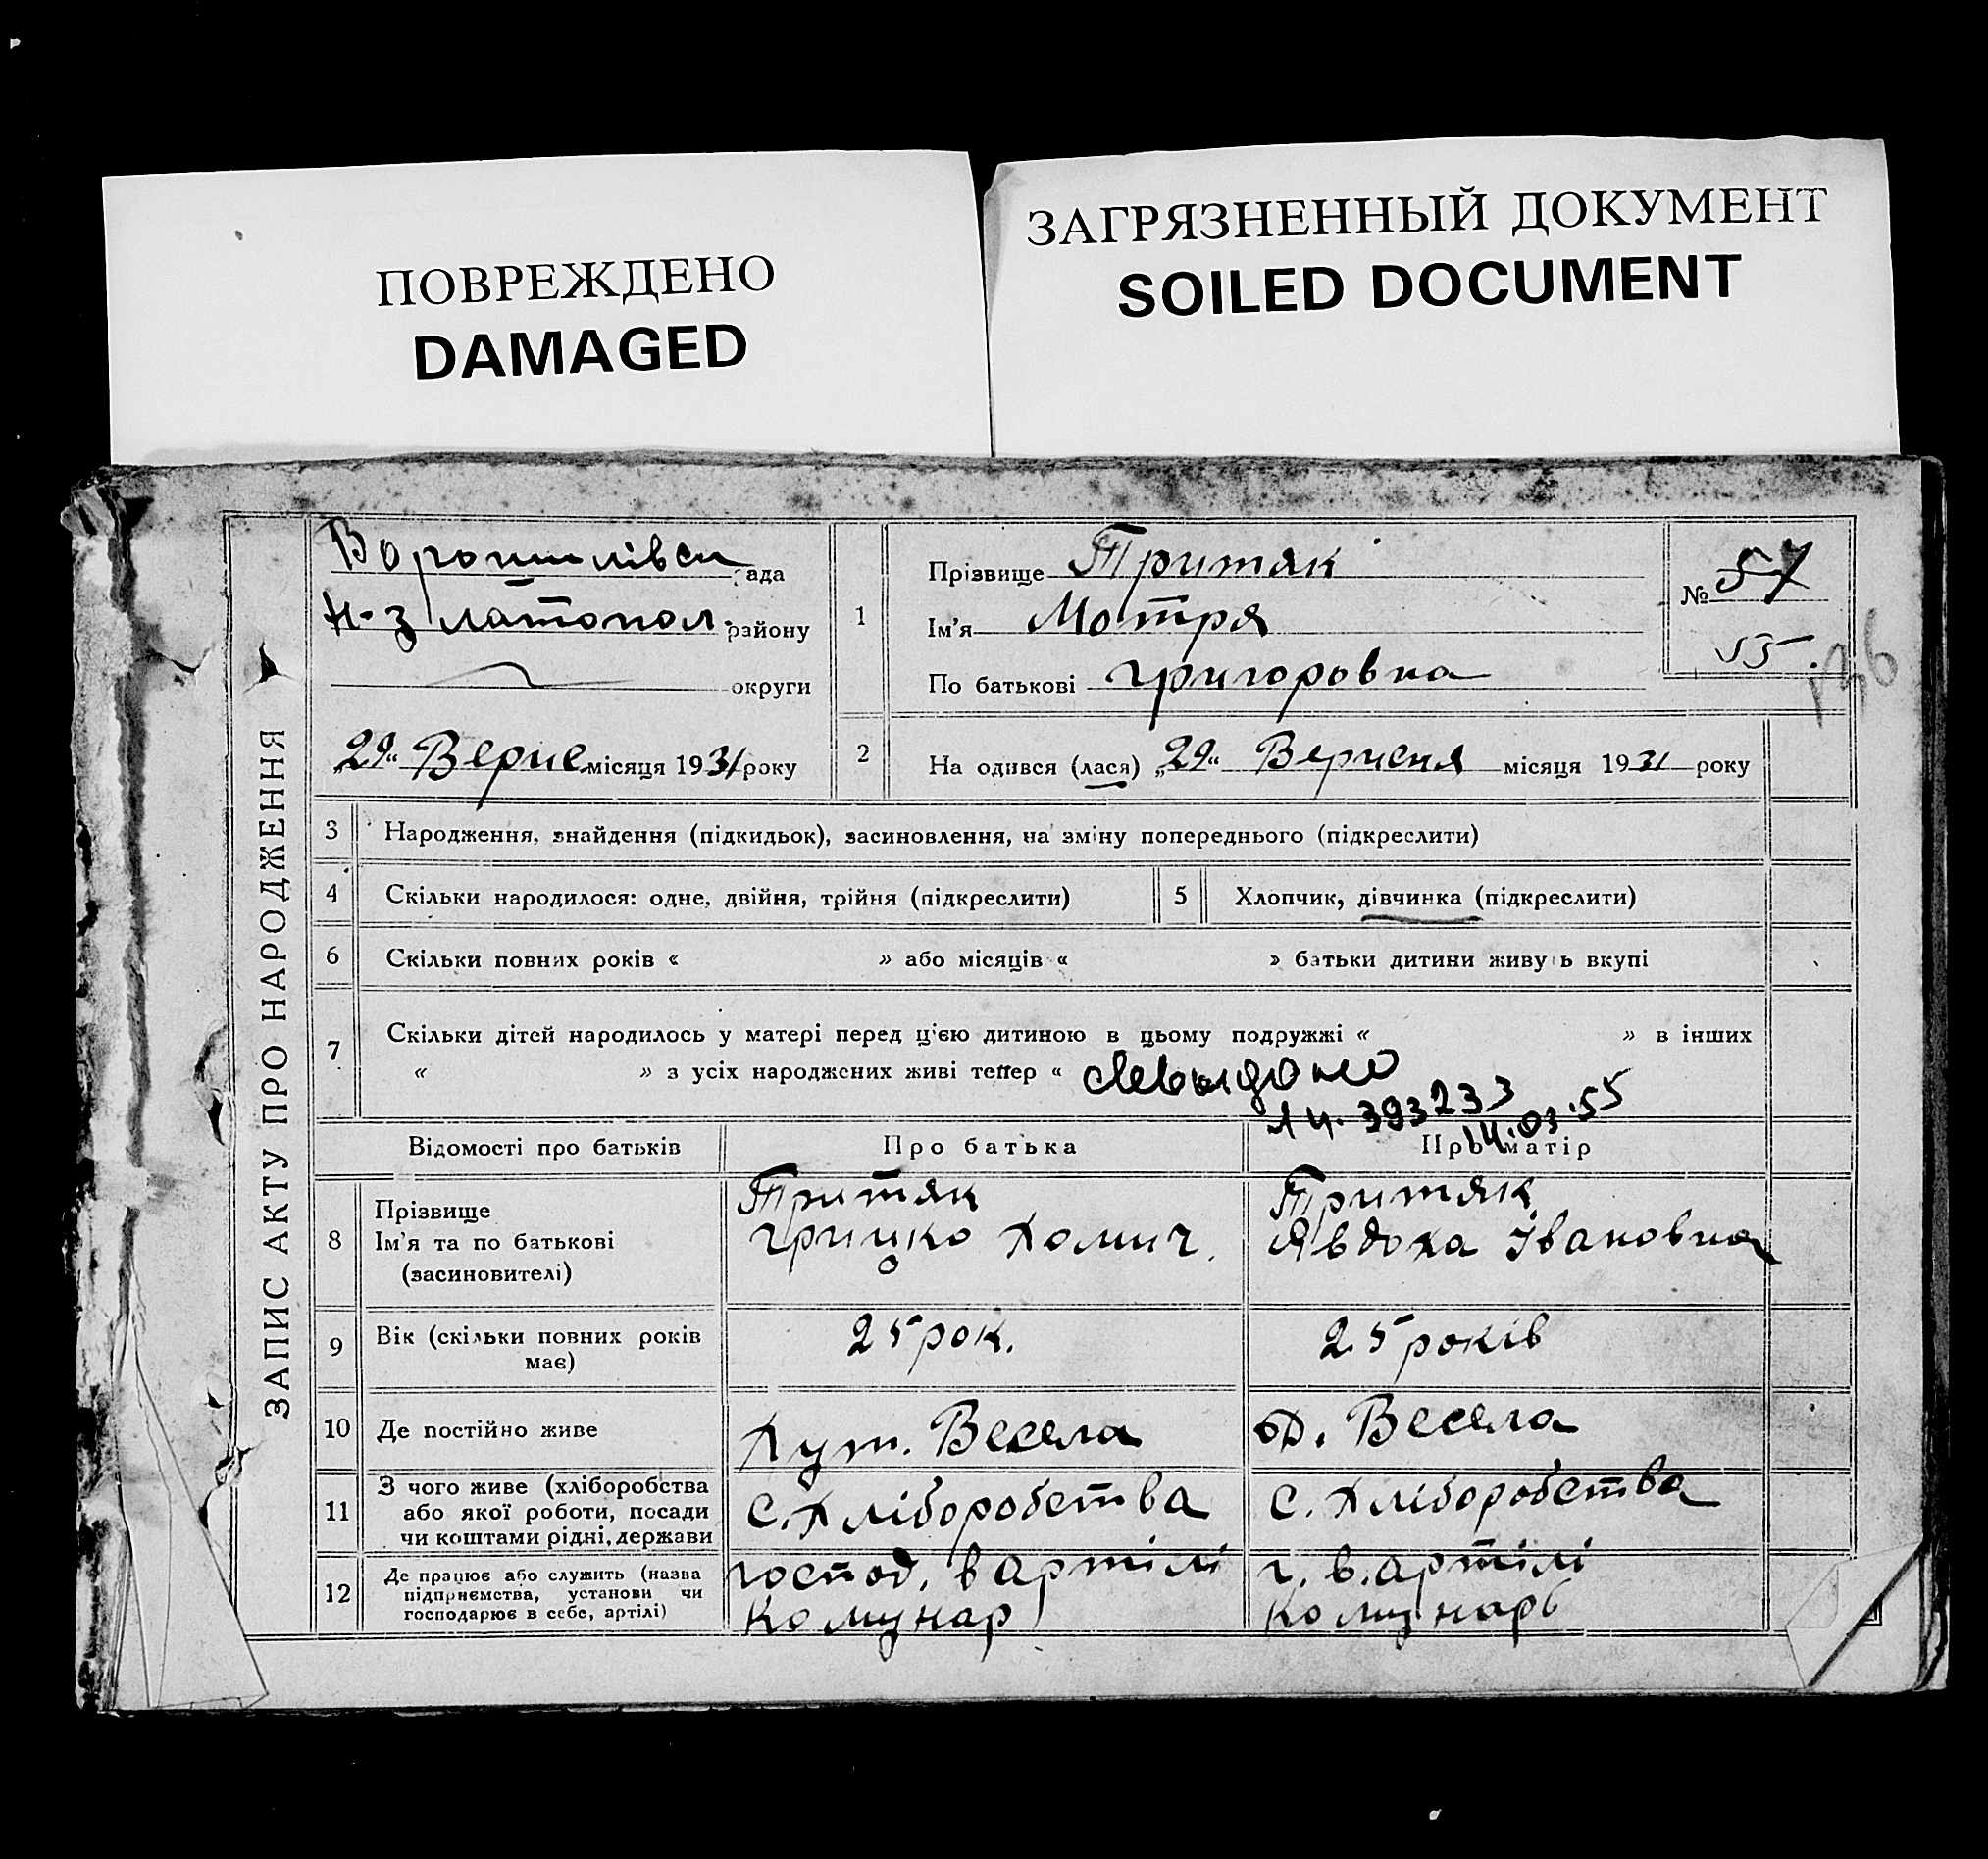 ПОВРЕЖДЕНО
DAMAGED
ЗАГРЯЗНЕННЫЙ ДОКУМЕНТ
SOILED DOCUMENT
ЗАПИС АКТУ ПРО НАРОДЖЕННЯ
Ворошилівсь рада
Н-Златопол. району
округи
„29“ Верне місяця 1931 року
1
Прізвище Притяк
Ім'я Мотря
По батькові Григоровна
№ 57
55
136
2
На одився (лася) „29“ Вернсня місяця 1931 року
3 Народження, знайдення (підкидьок), засиновлення, на зміну попереднього (підкреслити)
4 Скільки народилося: одне, двійня, трійня (підкреслити) 5 Хлопчик, дівчинка (підкреслити)
6 Скільки повних років « » або місяців « » батьки дитини живуть вкупі
7 Скільки дітей народилось у матері перед цією дитиною в цьому подружжі « » в інших
« » з усіх народжених живі тепер «
14. 393233
14.03.55
Відомості про батьків Про батька Про матір
8 Прізвище
Ім'я та по батькові
(засиновителі)
Притяк
Грицко Хомич.
Притяк
Явдоха Івановна
9 Вік (скільки повних років
має)
25 рок.
25 років
10 Де постійно живе
Хут. Весела
Х. Весела
11 З чого живе (хліборобства
або якої роботи, посади
чи коштами рідні, держави
С. Хліборобства
С. Хліборобства
12 Де працює або служить (назва
підприємства, установи чи
господарює в себе, артілі)
господ. в артілі
Комунар
г. в. артілі
Комунарь